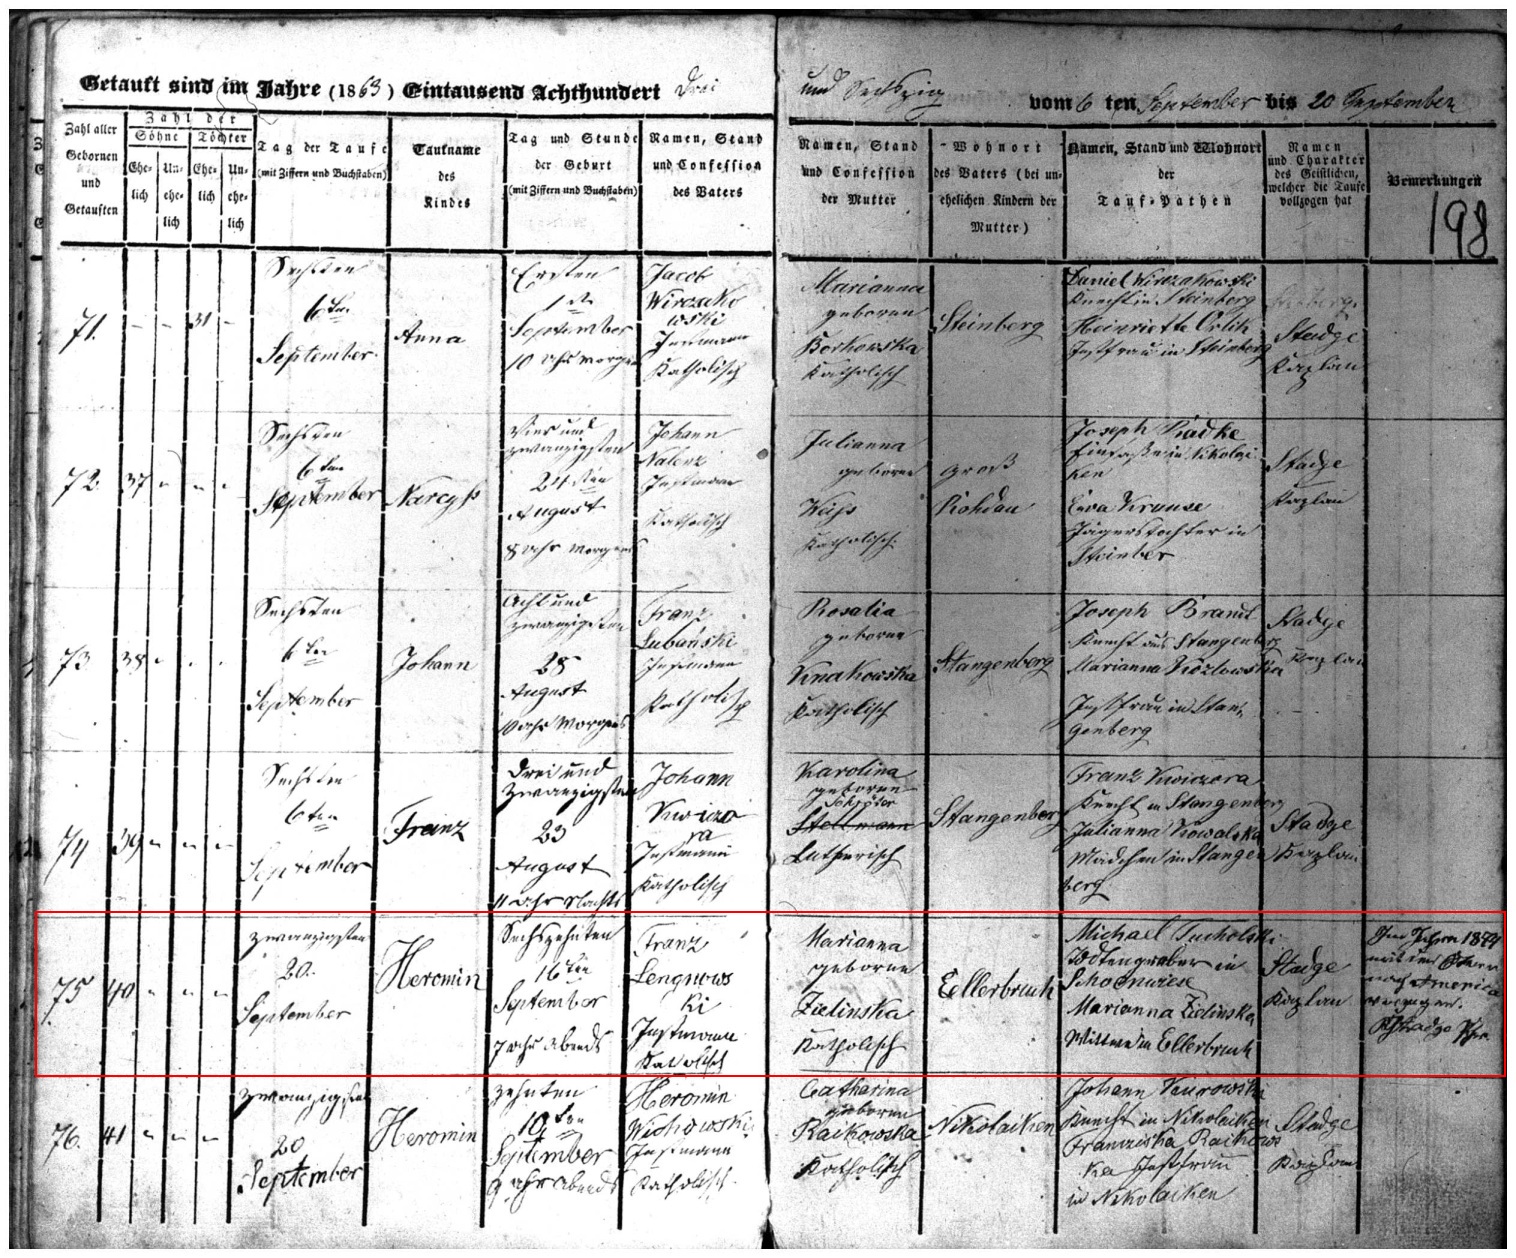 Getauft sind im Jahre (1863) Eintausend Achthundert Drei
und Sechszig vom 6 ten September bis 20 September
Zahl aller Gebornen und Getauften
Zahl der
Söhne
Töchter
Ehe-lich
Un-ehe-lich
Ehe-lich
Un-ehe-lich
Tag der Taufe
(mit Ziffern und Buchstaben)
Taufname des Kindes
Tag und Stunde der Geburt
(mit Ziffern und Buchstaben)
Namen, Stand und Confession des Vaters
Namen, Stand und Confession der Mutter
Wohnort des Vaters (bei un-ehelichen Kindern der Mutter)
Namen, Stand und Wohnort der Tauf-Pathen
Namen und Charakter des Geistlichen, welcher die Taufe vollzogen hat
Bemerkungen
198
71.
- - 31 -
Sechsten
6ten
September
Anna
Ersten
1ten
September
10 Uhr Morgen
Jacob
Wirczako
wski
Instmann
Katholisch
Marianna
geboren
Borkowska
Katholisch
Steinberg
Daniel Wirczakowski
Knecht in Steinberg
Heinriette Orlik
Instfrau in Steinberg
Stadge
Kaplan
72.
37 - - -
Sechsten
6ten
September
Narcyß
Vier und
zwanzigsten
24sten
August
8 Uhr Morgens
Johann
Nalenz
Instmann
Katholisch
Julianna
geboren
Weiß
Katholisch
Groß
Rohdau
Joseph Radke
Einsaße in Nikolai
ken
Eva Krause
Jägerstochter in
Steinber
Stadge
Kaplan
73
38 - - -
Sechsten
6ten
September
Johann
Acht und
zwanzigsten
28
August
10 Uhr Morgens
Franz
Lubański
Instmann
Katholisch
Rosalia
geborne
Knakowska
Katholisch
Stangenberg
Joseph Brandt
Knecht aus Stangenberg
Marianna Kozlowska
Instfrau in Stan-
genberg
Stadge
Kaplan
74
39 - - -
Sechsten
6ten
September
Franz
Drei und
Zwanzigsten
23
August
11 Uhr Nachts
Johann
Kwiczo
ra
Instmann
Katholisch
Karolina
geboren
Schröter
Stellmann
Lutherisch
Stangenberg
Franz Kwiczora
Knecht in Stangenberg
Julianna Kowalska
Mädchen in Stangen
berg
Stadge
Kaplan
75
40 - - -
Zwanzigsten
20.
September
Heromin
Sechszehnten
16ten
September
7 Uhr Abends
Franz
Lengnows
ki
Instmann
Katholisch
Marianna
geborne
Zielinska
Katholisch
Ellerbruch
Michael Tucholski
Todtengräber in
Schönwiese
Marianna Zielinska
Wittwe in Ellerbruch
Stadge
Kaplan
Im Jahre
mit den Eltern
nach America
76.
41 - - -
Zwanzigsten
20
September
Heromin
Zehnten
10ten
September
9 Uhr Abends
Heromin
Wichowski
Instmann
Katholisch
Catharina
geboren
Raikowska
Katholisch
Nikolaiken
Johann
Knecht in Nikolaiken
Franziska Raikows
ka Instfrau
in Nikolaiken
Stadge
Kaplan